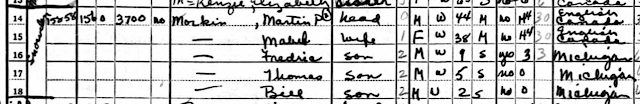 McKenzie, Elizabeth
14 1560 3700 no Morkin, Martin head 0 M W 44 M no H4 30 English Canada
15 — Mabel wife 1 F W 38 M no H4 30 English Canada
16 — Fredric son 2 M W 9 S yes 3 3 Michigan
17 — Thomas son 2 M W 5 S no 0 Michigan
18 — Bill son 2 M W 2 S no 0 Michigan